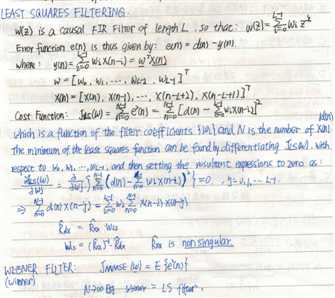 LEAST SQUARES FILTERING.
W(z) is a causal FIR Filter of length L, so that: W(z) = Σ_{i=0}^{L-1} wi z^-i
Error function e(n) is thus given by: e(n) = d(n) - y(n).
where: y(n) = Σ_{i=0}^{L-1} wi x(n-i) = w^T x(n)
w = [w0, w1, ..... wL-2 wL-1]^T
x(n) = [x(n), x(n-1), ..., x(n-L+2), x(n-L+1)]^T
Cost Function: JLS(w) = Σ_{n=0}^{N-1} e²(n) = Σ_{n=0}^{N-1} [d(n) - Σ_{i=0}^{L-1} wi x(n-i)]²
which is a function of the filter coefficients {wi} and N is the number of x(n)
The minimum of the least squares function can be found by differentiating JLS(w), with
respect to w0, w1, ..., wL-1, and then setting the resultant expressions to zero as :
= Σ (d(n) - Σ wi x(n-i))² } = 0,
⇒ Σ d(n) x(n-j) = Σ wi Σ x(n-i) x(n-j)
R̂dx = R̂xx WLS
WLS = (R̂xx)^-1 R̂dx R̂xx is non singular.
WIENER FILTER: JMMSE(w) = E {e²(n)}
(Wiener)
N→∞ wiener = LS filter.